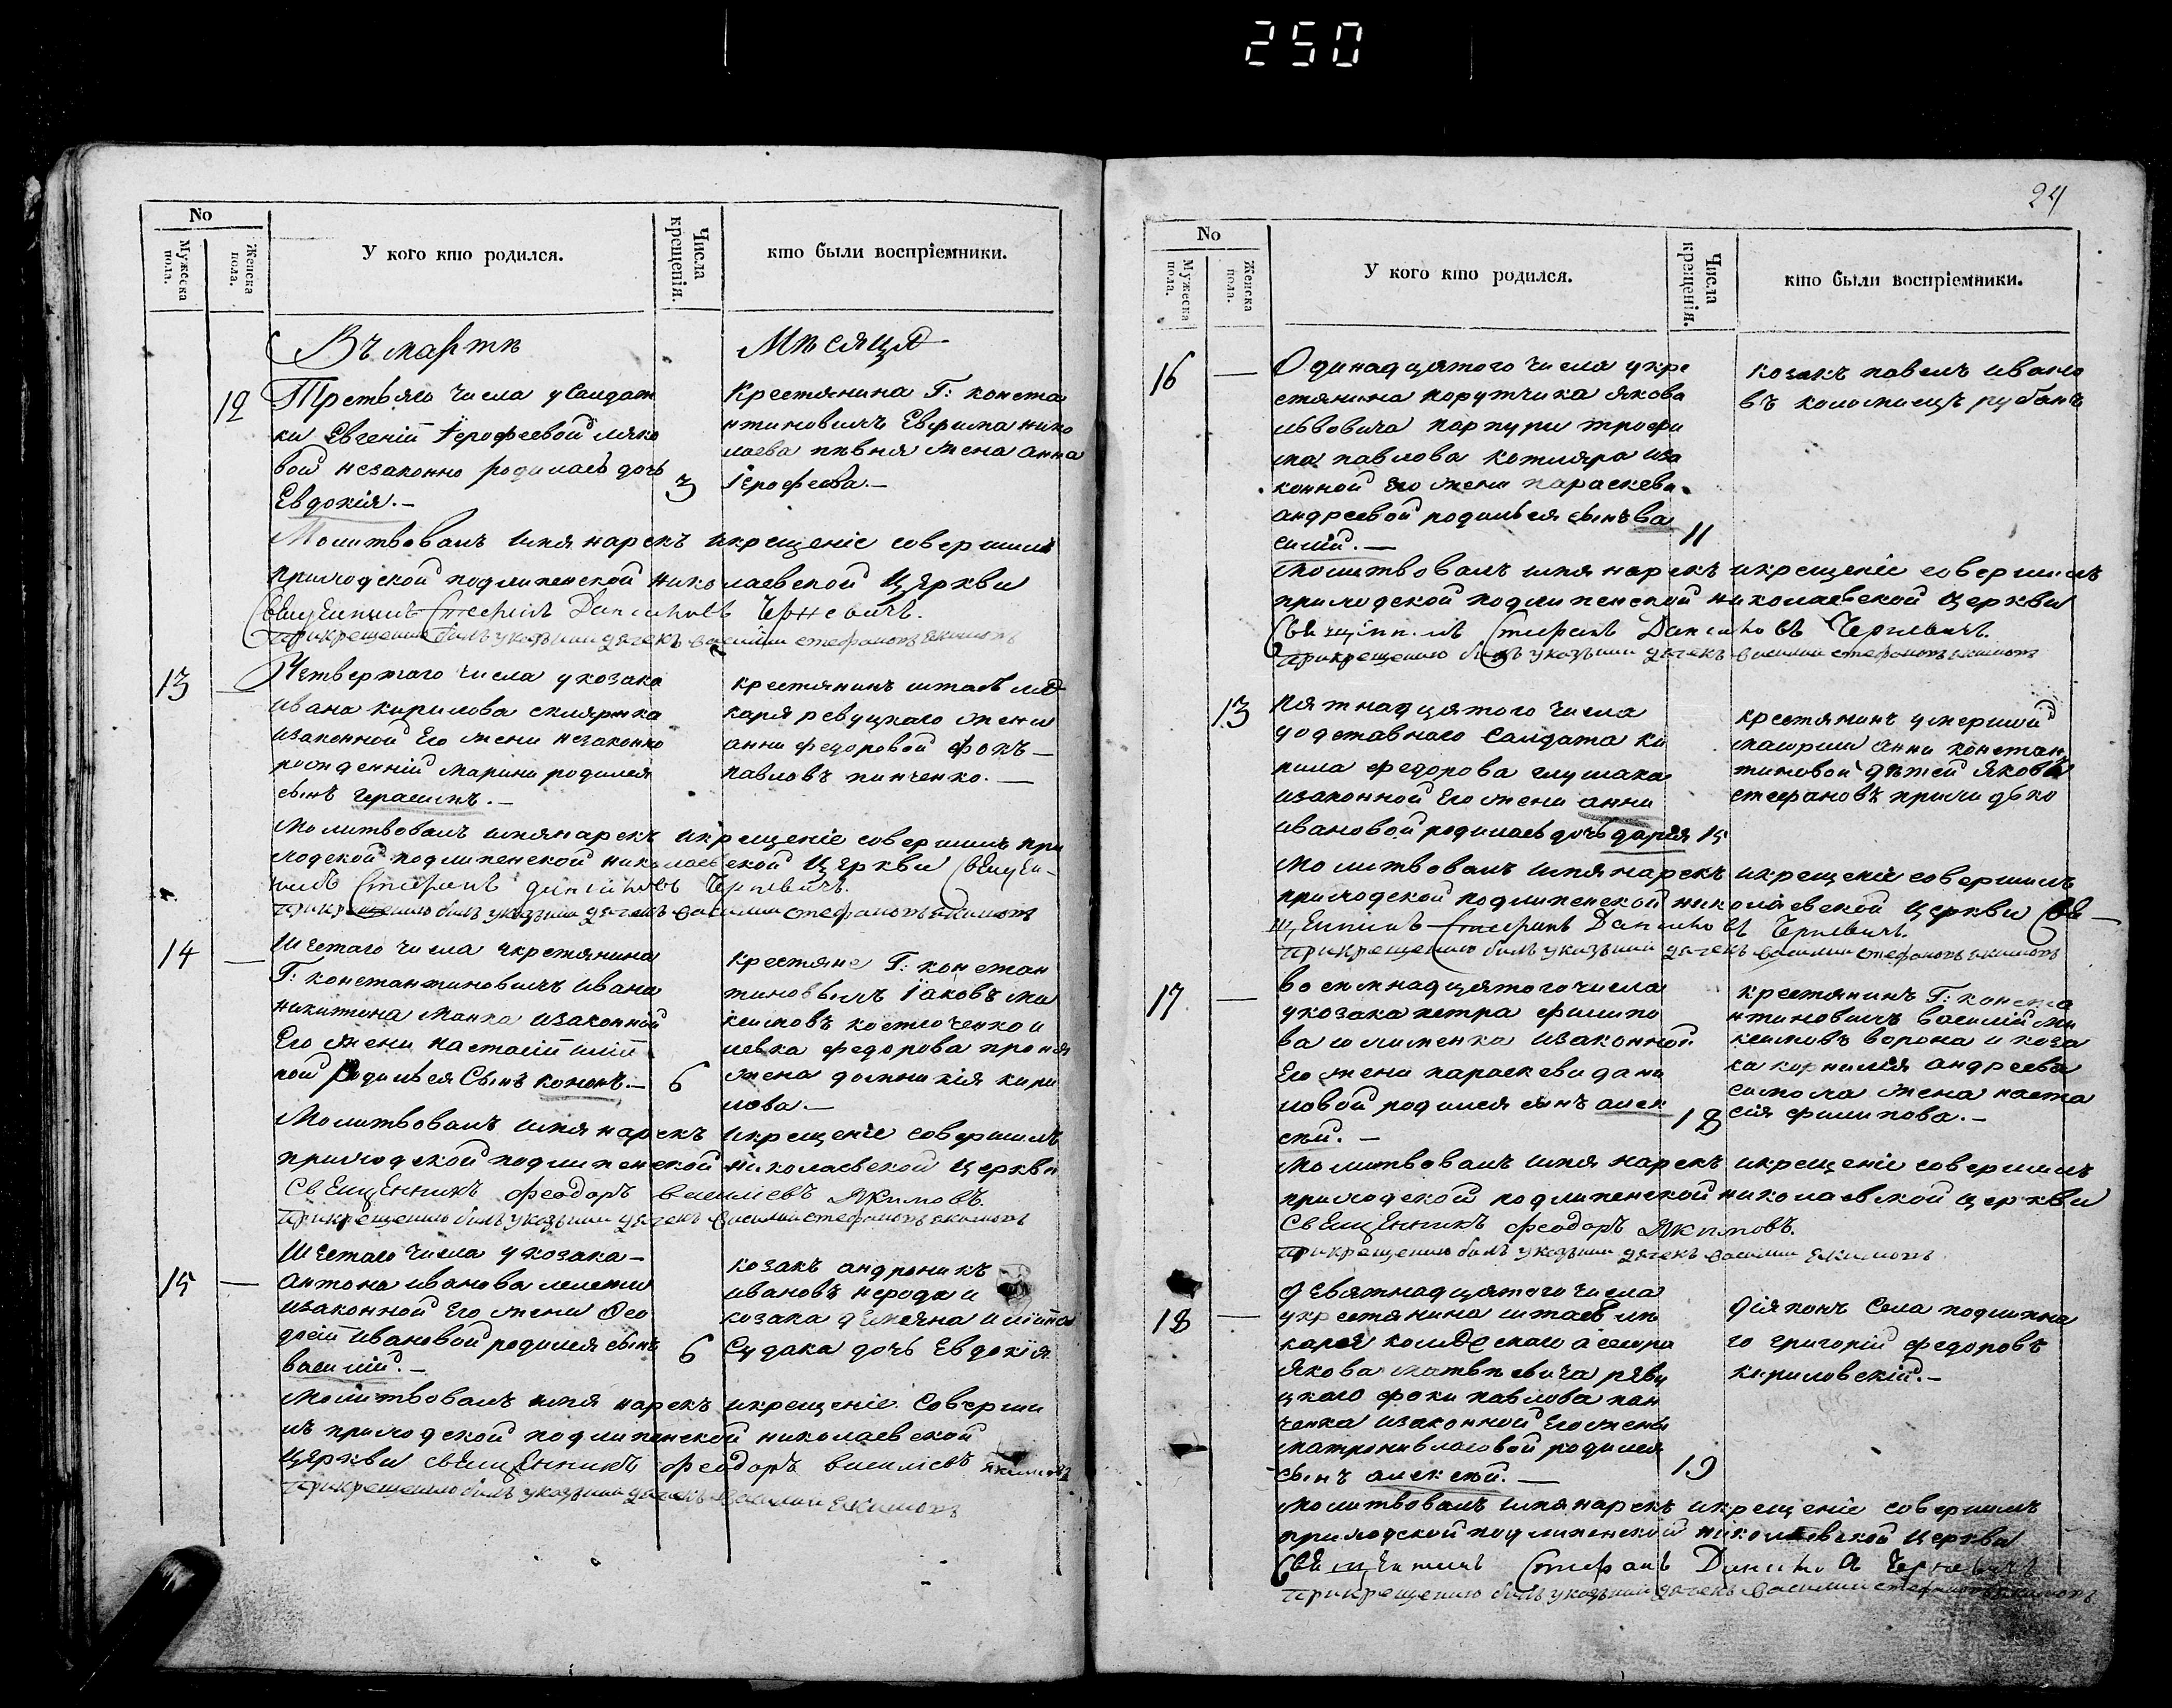 250
No
Мужеска пола.
Женска пола.
У кого кто родился.
Числа крещенія.
кто были воспріемники.
Въ мартѣ
Мѣсяцѣ
12
Третьяго числа у Салдат
ки Евгеніи Іерофеевой
вой незаконно родилась дочь
Евдокія.—
3
Крестянина Г: конста
нтиновичъ Евфима нико
лаева пѣвня жена анна
Іерофеева.—
Молитвовалъ имя нарекъ и крещеніе совершилъ
приходской подлипенской николаевской Церкви
Священникъ Стефанъ Даниловъ Черневичъ.
При крещеніи былъ указный дячекъ василий стефановъ якимовъ
13 —
Четвертого числа у козака
ивана кирилова скляренка
изаконной Его жени незаконно
рожденній марини родился
сынъ герасимъ.—
крестянинъ штабъ лѣ
каря ревуцкаго жени
анни федоровой фокъ—
павловъ панченко.—
Молитвовалъ имя нарекъ и крещеніе совершилъ при
ходской подлипенской николаевской Церкви Священ-
никъ Стефанъ даниловъ Черневичъ.
При крещеніи былъ указный дячекъ василий стефановъ якимовъ
14 —
Шестаго числа у крестянина
Г: константиновичъ ивана
никитина манка изаконній
Его жени настасіи
ной родился Сынъ кононъ.— 6
Крестяне Г: констан
тиновичъ Іаковъ ма
ксимовъ костюченко и
левка федорова
жена домникія кири
лова.—
Молитвовалъ имя нарекъ и крещеніе совершилъ
приходской подлипенской николаевской Церкви
Священникъ феодоръ василіевъ Якимовъ.
При крещеніи былъ указный дячекъ василий стефановъ якимовъ
15 —
Шестаго числа у козака—
антона иванова
изаконной Его жени Фео
досіи ивановой родился сынъ
василій.— 6
козакъ андроникъ
ивановъ нерода и
козака демяна
Судака дочь Евдокія
Молитвовалъ имя нарекъ и крещеніе Соверши
лъ приходской подлипенской николаевской
Церкви священникъ феодоръ василіевъ якимовъ
При крещеніи былъ указный дячекъ василий якимовъ
24
No
Мужеска пола.
Женска пола.
У кого кто родился.
Числа крещенія.
кто были воспріемники.
16 —
Одинадцятого числа у кре
стянина порутчика якова
львовича парпури трофи
ма павлова котляра иза
конной его жени параскеви
андреевой родился сынъ ва
силій.— 11
козакъ павелъ ивано
въ коломиецъ рубанъ
Молитвовалъ имя нарекъ и крещеніе совершилъ
приходской подлипенской николаевской Церкви
Священникъ Стефанъ Даниловъ Черневичъ.
При крещеніи былъ указный дячекъ василий стефановъ якимовъ
13
Пятнадцятого числа
у одставного Салдата ки
рила федорова глушака
изаконной Его жени анни
ивановой родилась дочь дарія 15
крестянинъ умершой
маиорши анни констан
тиновой дѣтей Яковъ
стефановъ приходко
Молитвовалъ имя нарекъ и крещеніе совершилъ
приходской подлипенской николаевской Церкви Свя—
щенникъ Стефанъ Даниловъ Черневичъ.
При крещеніи былъ указный дячекъ василий стефановъ якимовъ
17 —
восемнадцятого числа
у козака петра филипо
ва изаконной
Его жени параскеви дани
ловой родился сынъ алек
сей.— 18
крестянинъ Г: конста
нтиновичъ василій ма
ксимовъ ворона и коза
ка корнилія андреева
жена наста
сія филипова.—
Молитвовалъ имя нарекъ и крещеніе совершилъ
приходской подлипенской николаевской церкви
Священникъ феодоръ Якимовъ.
При крещеніи былъ указный дячекъ василий якимовъ
18 —
девятнадцятого числа
у крестянина штабъ лѣ
каря колѣжскаго асесора
якова матвѣевича реву
цкаго фоки павлова пан
ченка изаконной Его жены
матрони власовой родился
сынъ алексей.— 19
Діяконъ Села подлипна
го григорій федоровъ
кириловскій.—
Молитвовалъ имя нарекъ и крещеніе совершилъ
приходской подлипенской николаевской Церкви
Священникъ Стефанъ Даниловъ Черневичъ
При крещеніи былъ указный дячекъ василий стефановъ якимовъ